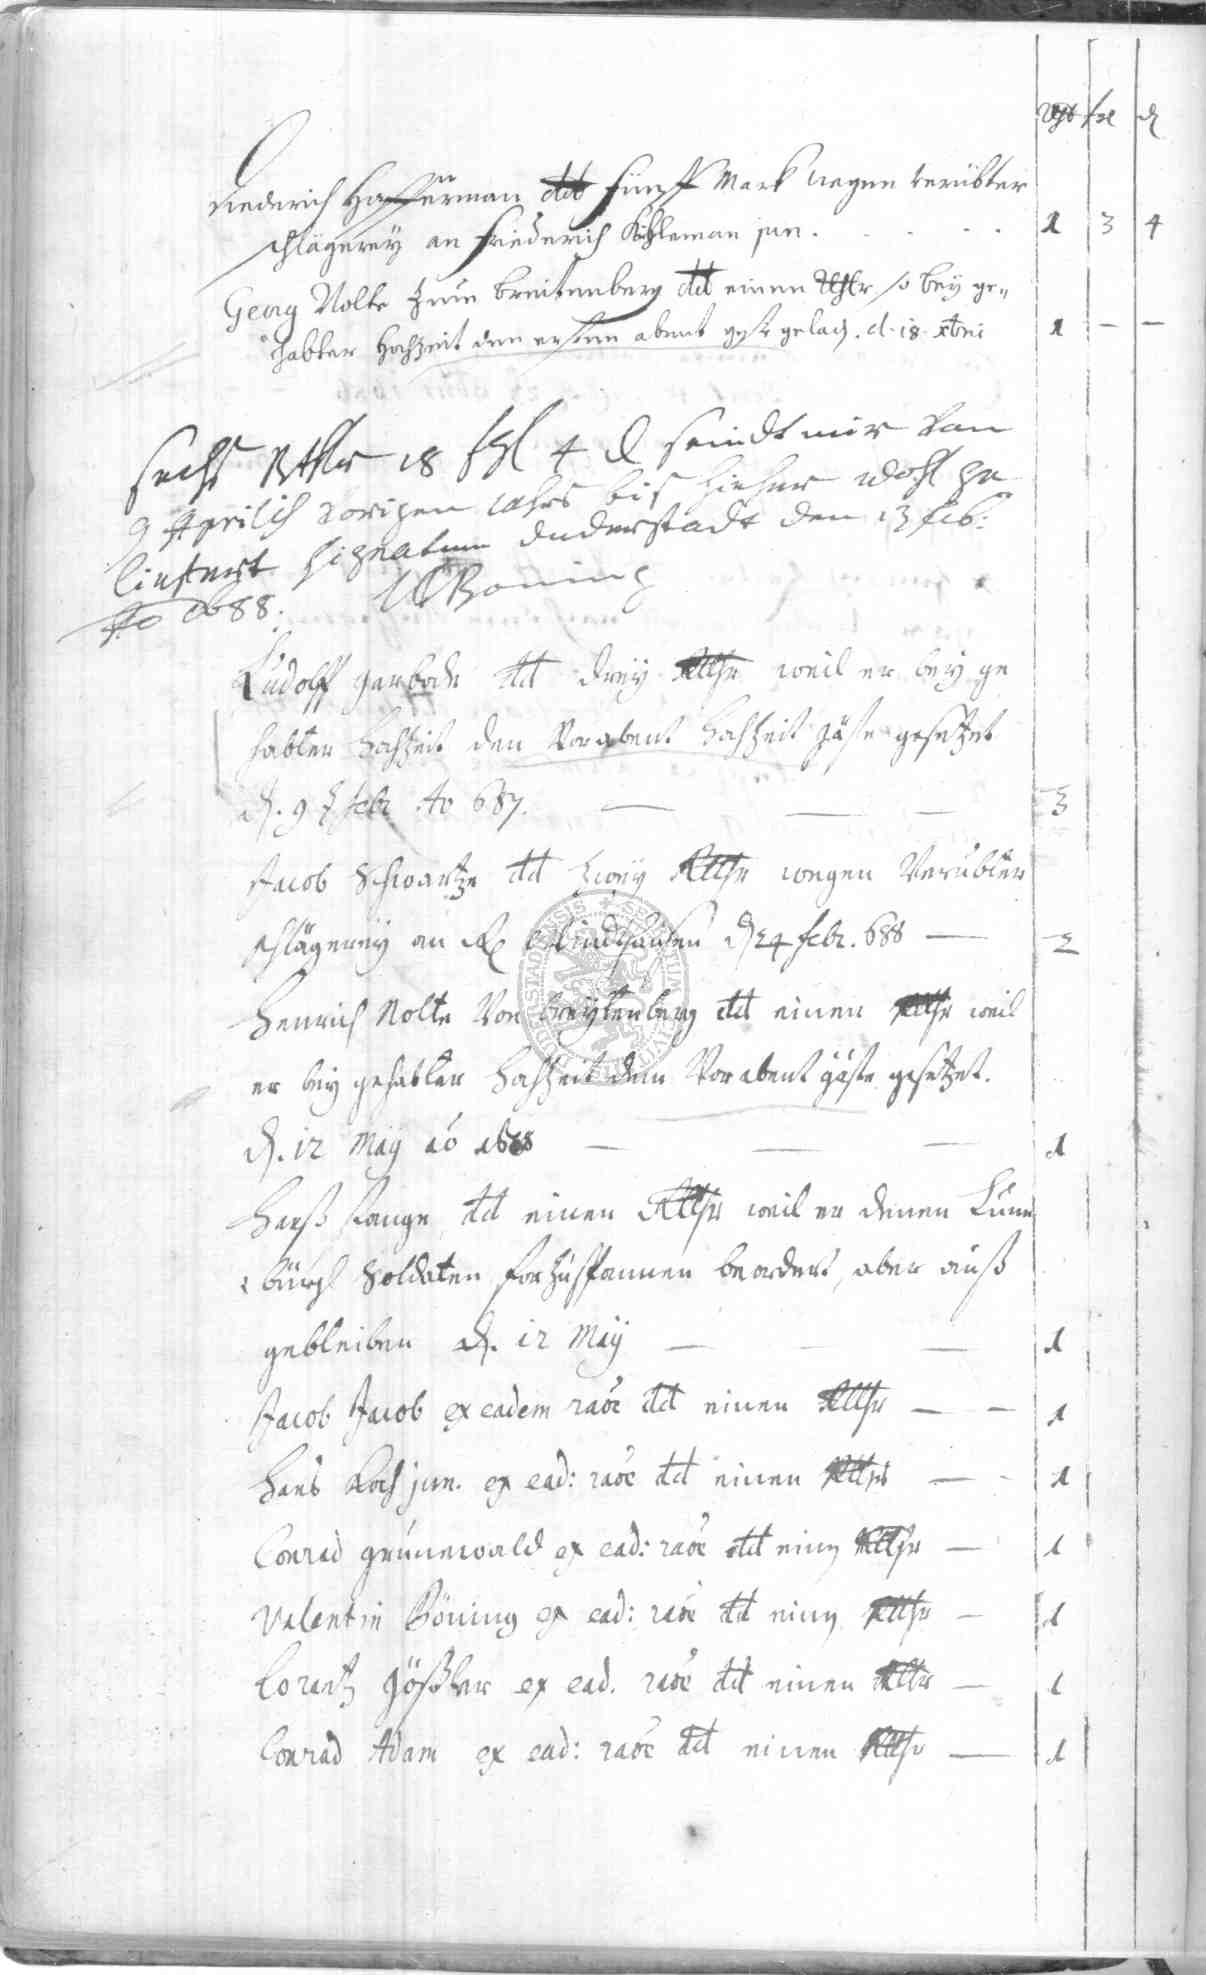 Rthl ßl d
Diederich Hasserman dd fünff Mark wegen verübter
schlägerey an Friederich Kohleman jun. . . . . . 1 3 4
Georg Nolte zum breitenberg dd einen Rthlr so bey ge=
habter Hochzeit den ersten abent gest gelad. d. 18. xbris 1 — —
sechs Rthlr 18 ßgl 4 d seindt mir von
9 Aprilis vorigen Jahrs bis hieher wohl ge
liefert signatum duderstadt den 13 feb:
Ao 1688. Böning
Ludolff Garbode dd drey Rthlr weil er bey ge
habter hochzeit den Vorabent hochzeit gäste gesetzet
d. 9 febr. Ao 687. — — — 3
Jacob Schwartze dd zwey Rthlr wegen Verübter
schlägerey an Windthausen d 24 febr. 688 — 2
Henrich Nolte Von breytenberg dd einen Rthlr weil
er bey gehabter hochzeit den Vorabent gäste gesetzet.
d. 12 May ao 1688 — — — 1
Hanß Stange dd einen Rthlr weil er denen Lüne
bürgl Soldaten forzuspannen beordert, aber auß
geblieben d. 12 May — — 1
Jacob Jacob ex eadem raoe dd einen Rthlr — — 1
Hans Koch jun. ex ead: raoe dd einen Rthlr — 1
Conrad grünewald ex ead: raoe dd einen Rthlr — 1
Valentin Böning ex ead: raoe dd einen Rthlr — 1
Lorentz Gößler ex ead. raoe dd einen Rthlr — 1
Conrad Adam ex ead: raoe dd einen Rthlr — 1